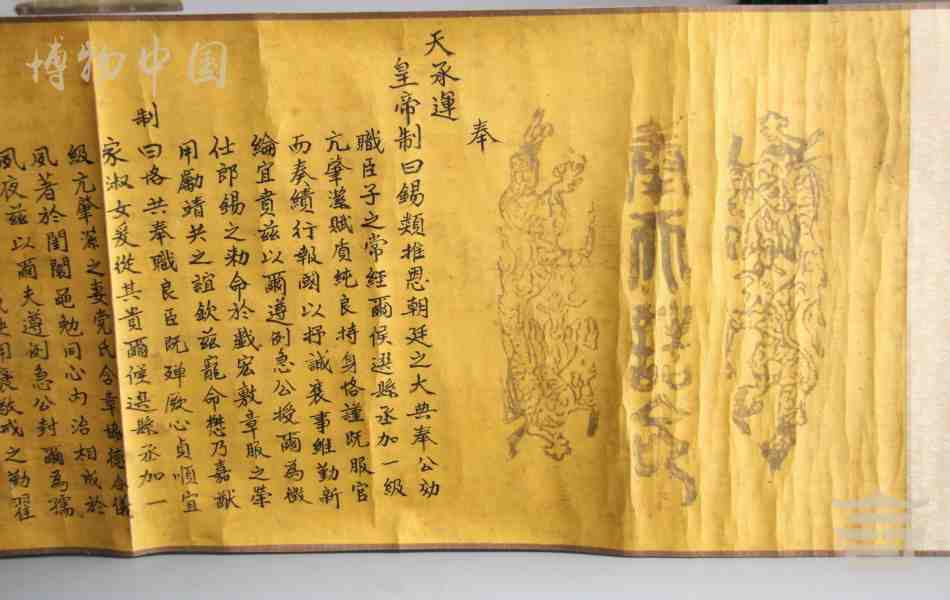 奉天誥命
奉
天承運
皇帝制曰錫類推恩朝廷之大典奉公効
職臣子之常經爾候選縣丞加一級
亢肇瀠賦質純良持身恪謹旣服官
而奏績行報國以抒誠衷事維勤新
綸宜賁茲以爾遵例急公授爾為徵
仕郎錫之勅命於戲宏敷章服之榮
用勵靖共之誼欽茲寵命懋乃嘉猷
制曰恪共奉職良臣旣殫厥心貞順宜
家淑女爰從其貴爾候選縣丞加一
級亢肇瀠之妻党氏含章協德令儀
風著於閨闥黽勉同心內治相成於
夙夜茲以爾夫遵例急公封爾為孺
敬戒之勤翟
博物中国